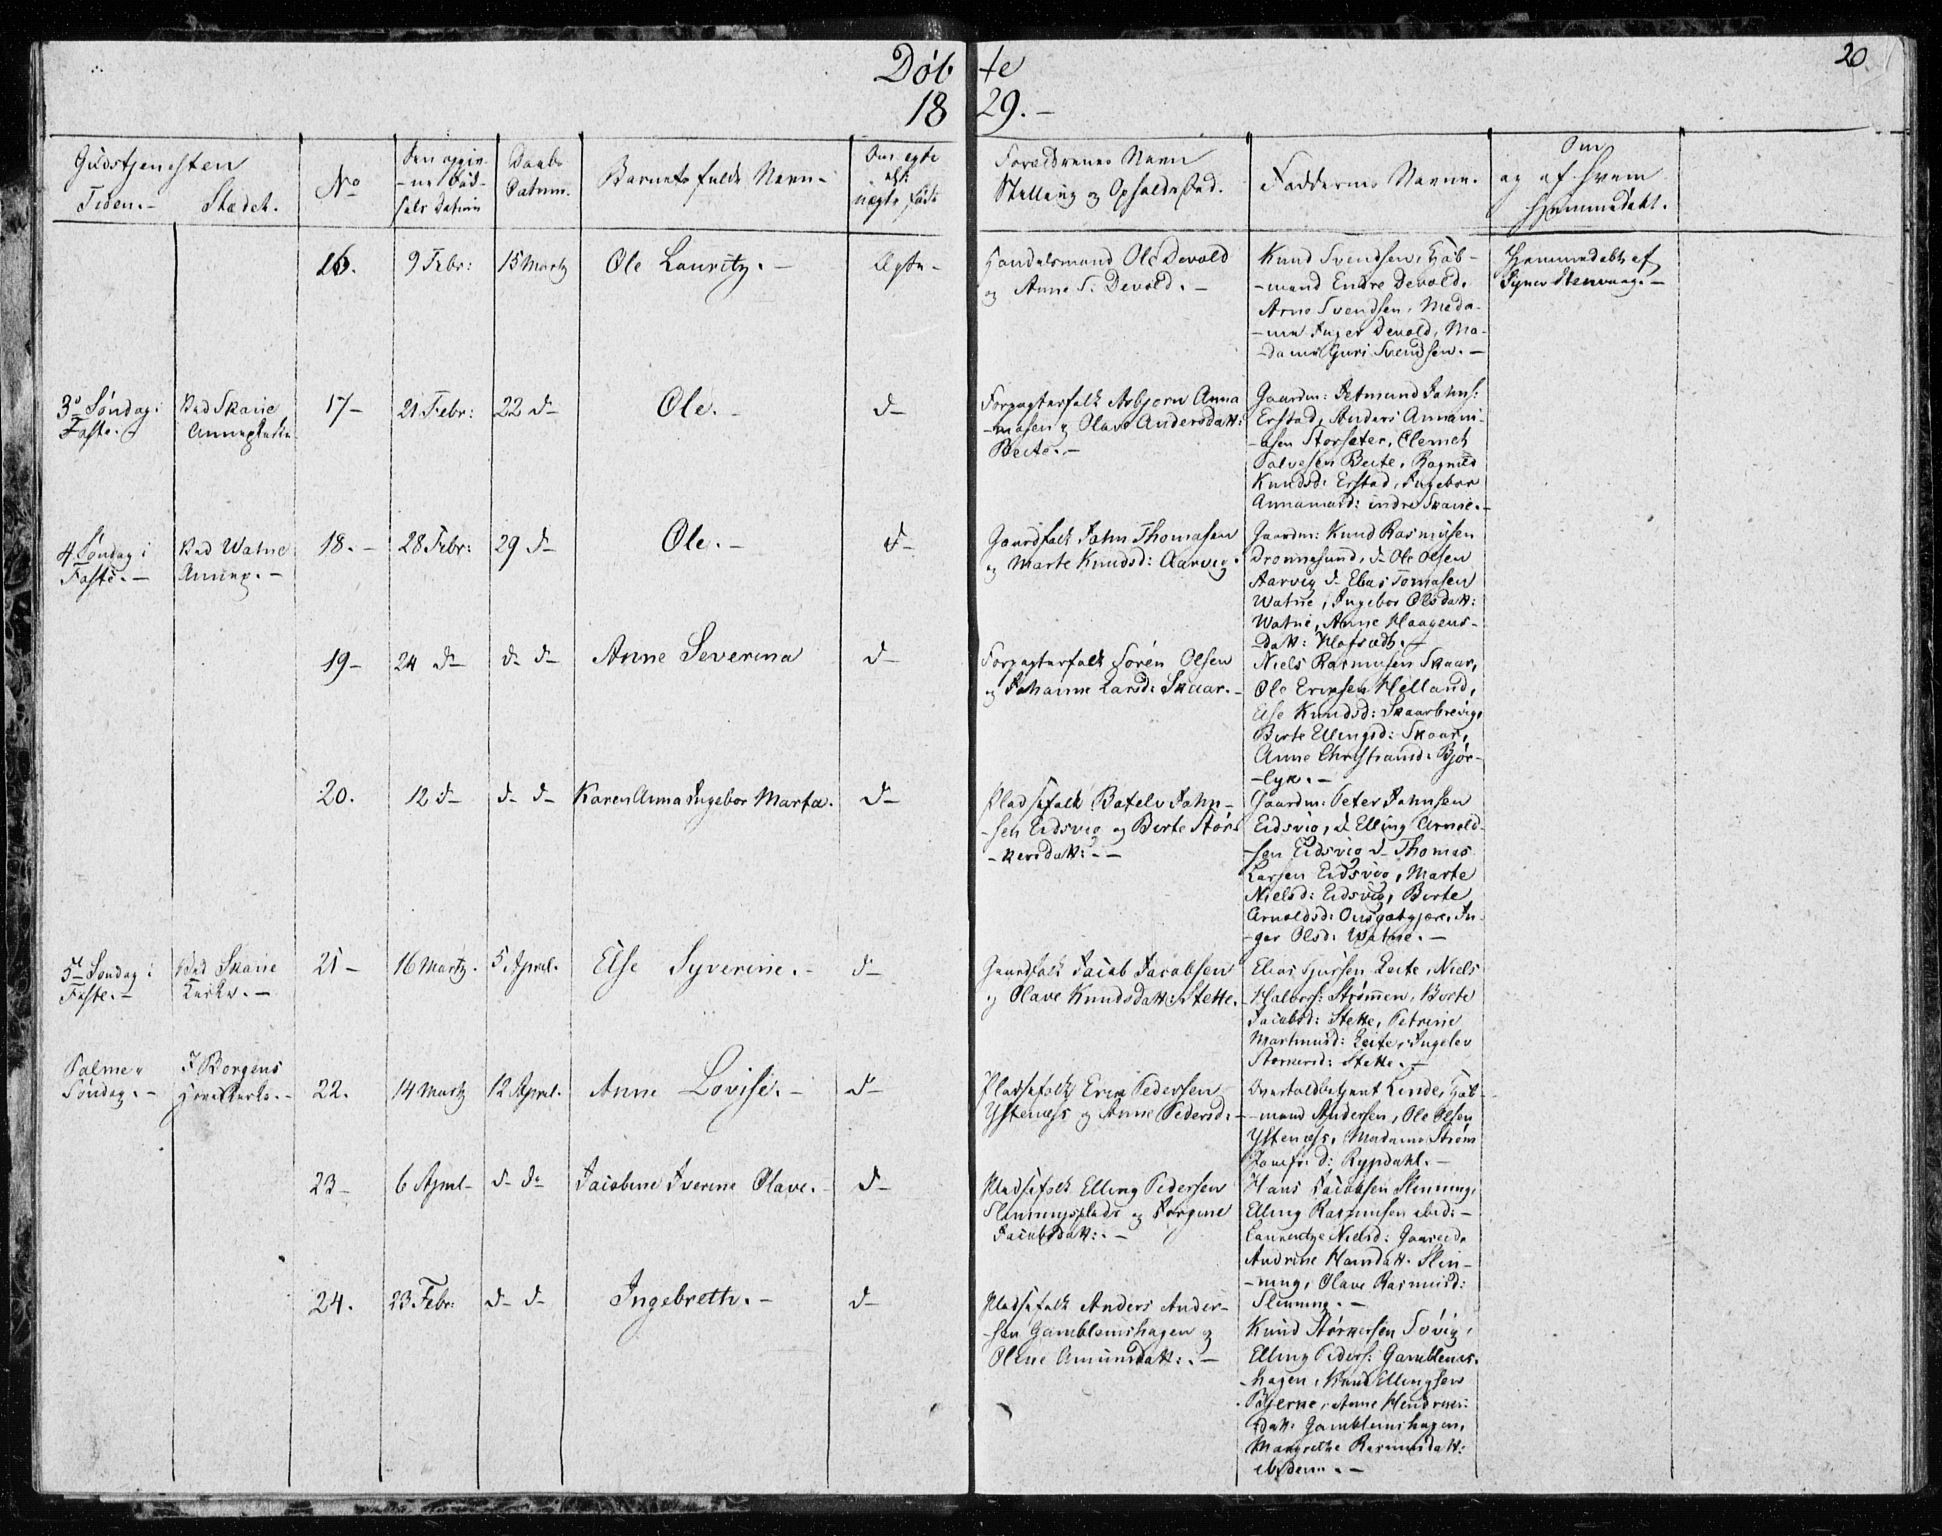 Døbte
1829.-
20
Gudstjenesten
Tiden.- Stædet.
No
Den opgiv-
-ne Fød-
sels Datum
Daabs
Datum.
Barnets fulde Navn-
Om ægte
eller
uægte født
Forældrenes Navn
Stilling og Opholdssted.
Faddernes Navne.
Om
og af hvem
hjemmedøbt.
16. 9 Febr: 15 Martz Ole Lauritz.- Ægte-
Handelsmand Ole Devold
og Anne S. Devold.-
Knud Svendsen, Kjøb-
-mand Endre Devold,
Arne Svendsen, Mada-
-me Inger Devold, Ma-
-dame Guri Svendsen.-
Hjemmedøbt af
Stenvaag.-
3. Søndag i
Faste.-
Ved Skarie
17- 21 Febr: 22 d- Ole.- d-
Forpagterfolk Asbjørn Anna
-masen og Olave Andersdatt:
Beite.-
Gaardm: Jetmund Johns:
Erstad, Anders Annam-
-asen Storsæter, Clemet
Beite, Ragnild
Knudsd: Erstad, Ingebor
Annamasd: indre Skarie.-
4 Søndag i
Faste.-
Ved Watne
Annex.-
18.- 28 Febr: 29 d- Ole.- d-
Gaardfolk John Thomasen
og Marte Knudsd: Aarvig.
Gaardm: Knud Rasmusen
Dronnesund, d- Ole Olsen
Aarvig d- Elias Tomasen
Watne, Ingebor Olsdatt:
Watne, Anne Haagens-
datt:
19- 24 d- d- d- Anne Severina d-
Forpagterfolk Søren Olsen
og Johanne Larsd: Skaar.-
Niels Rasmusen Skaar,
Ole Ericksen Helland,
Else Knudsd: Skaarbrevig,
Berte Ellingsd: Skaar,
Anne Christiansd: Bjør-
-lyk.-
20. 12 d- d- d- Karen Anna Ingebor Marta. d-
Pladsefolk Botelv John-
-sen Eidsvig og Berte Stør-
-kersdatt:.-
Gaardm: Peter Johnsen
Eidsvig, d- Elling Arnold-
-sen Eidsvig d- Thomas
Larsen Eidsvig, Marte
Nielsd: Eidsvig, Berte
Arnoldsd: In-
-ger Olsd: Watne.-
5 Søndag i
Faste.-
Ved Skarie
Kirke.-
21- 16 Martz. 5 April. Else Syverine.- d-
Gaardfolk Jacob Jacobsen
og Olave Knudsdatt: Stette.
Elias Leite, Niels
Strømmen, Berte
Jacobsd: Stette, Petrine
Martinusd: Leite, Ingelev
Stette.-
Palme-
Søndag.-
I Borgens
Hovedkirke.-
22. 14 Martz 12 April. Anne Lovise.- d-
Pladsefolk Erik Pedersen
Ystenæss og Anne Pedersd:-
Overtoldbetjent Linde, Kjøb-
-mand Andersen, Ole Olsen
Ystenæss, Madame Strøm
Jomfr. d: Rypdahl.-
23- 6 April- d- d- Jacobine Iverine Olave.- d-
Pladsefolk Elling Pedersen
Slinningsplads og Jorgine
Jacobsdatt:.-
Hans Jacobsen Slinning,
Elling Rasmusen ibid:-
Nielsd:
Andrine Hansdatt. Slin-
-ning, Olave Rasmusd:
Slinning.-
24. 23 Febr: d- d- Ingebreth.- d-
Pladsefolk Anders Ander-
-sen Gamblemshagen og
Oline Amunsdatt:.-
Knud Størkersen Sövig,
Elling Peders: Gamblems-
-hagen, Knud Ellingsen
Anne Hendrics-
-datt: Gamblemshagen,
Margrethe Rasmusdatt:
ibidem.-